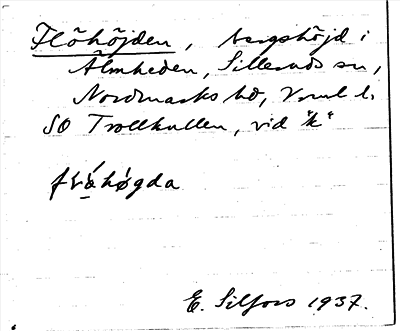 Flöhöjden, bergshöjd i
Älmheden, Silleruds sn,
Nordmarks hd, Vrml l.
SO Trollkullen, vid "k"
E. Silfors 1937.